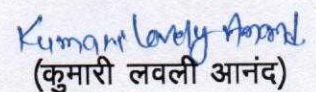 Kumari Lovely Anand
(कुमारी लवली आनंद)